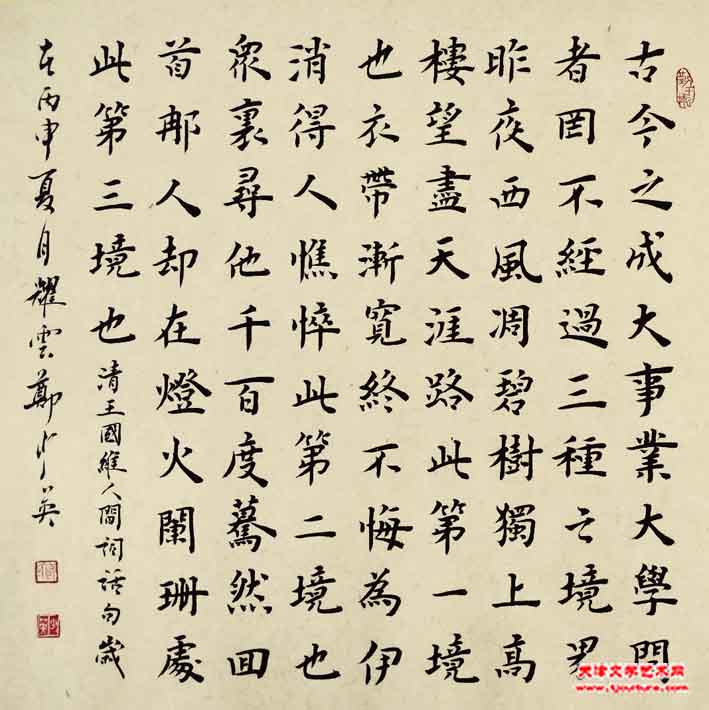 古今之成大事業大學問
者罔不經過三種之境界
昨夜西風凋碧樹獨上高
樓望盡天涯路此第一境
也衣帶漸寬終不悔為伊
消得人憔悴此第二境也
眾裏尋他千百度驀然回
首那人却在燈火闌珊處
此第三境也
清王國維人間詞話句歲
在丙申夏月耀雲鄭少英
天津文学艺术网
www.tjculture.com